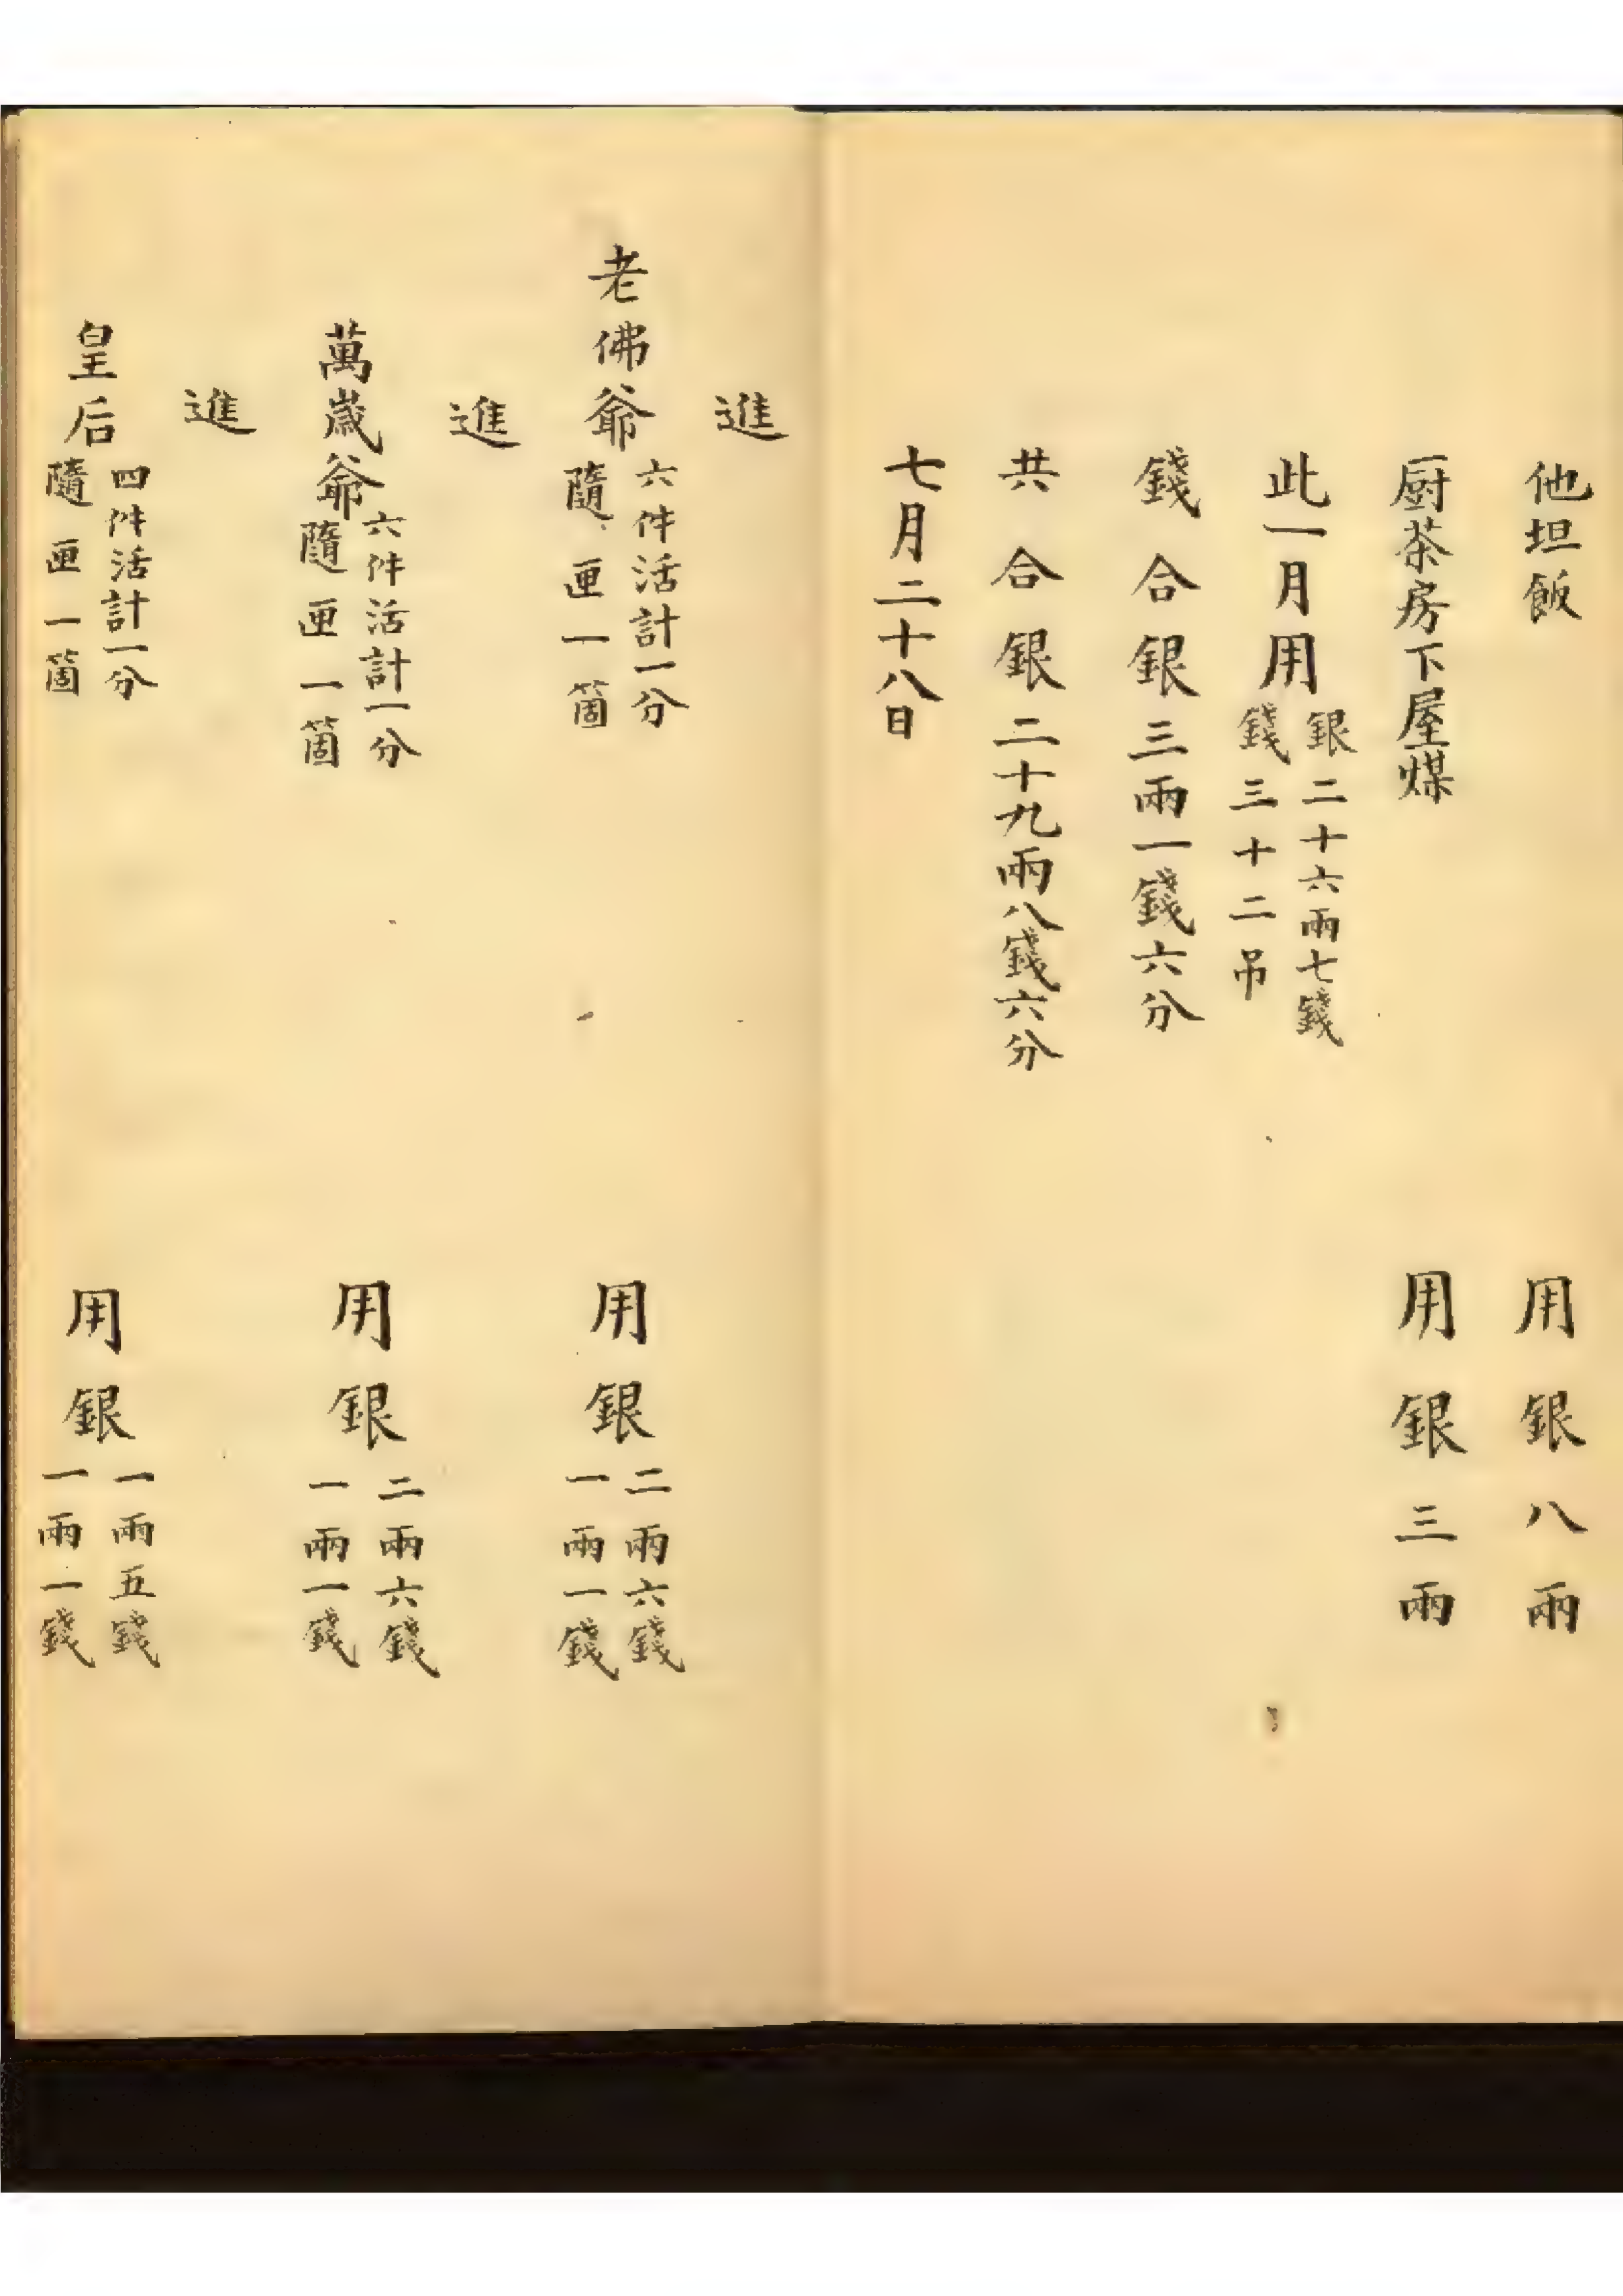 他坦飯 用銀八兩
厨茶房下屋煤 用銀三兩
此一月用
銀二十六兩七錢
錢三十二吊
錢合銀三兩一錢六分
共合銀二十九兩八錢六分
七月二十八日
進
老佛爺
六件活計一分
隨匣一箇
用銀
二兩六錢
一兩一錢
進
萬歲爺
六件活計一分
隨匣一箇
用銀
二兩六錢
一兩一錢
進
皇后
四件活計一分
隨匣一箇
用銀
一兩五錢
一兩一錢